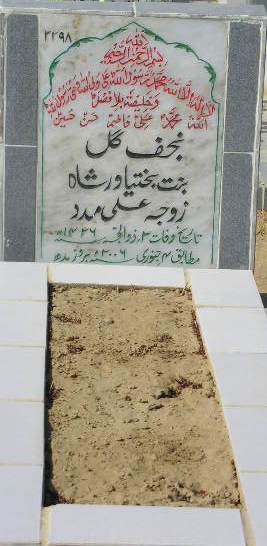 ۲۲۹۸
بسم اللہ الرحمن الرحیم
لا الہ الا اللہ محمد رسول اللہ علی ولی اللہ وصی رسول اللہ
وخلیفتہ بلا فصل
اللہ محمد علی فاطمہ حسن حسین
نجف گل
بنت بختیاور شاہ
زوجہ علی مدد
تاریخ وفات ۳، ذوالحجہ ۱۴۲۶ھ
مطابق ۴ جنوری ۲۰۰۶ء بروز بدھ